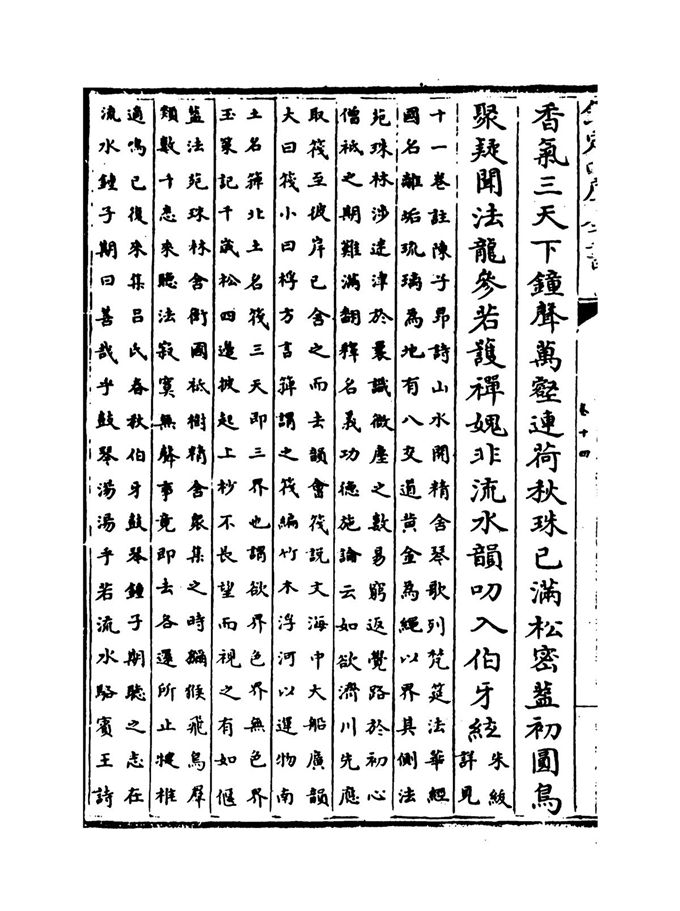 欽定四庫全書
卷十四
香氣三天下鐘聲萬壑連荷秋珠已滿松密蓋初圓鳥
聚疑聞法龍參若護禪媿非流水韻叨入伯牙絃
朱紱
詳見
十一卷註陳子昂詩山水開精舍琴歌列梵筵法華經
國名離垢琉璃為地有八交道黃金為繩以界其側法
苑珠林涉迷津於曩識微塵之數易窮返覺路於初心
僧祗之期難滿翻釋名義功德施論云如欲濟川先應
取筏至彼岸已舍之而去韻會筏說文海中大船廣韻
大曰筏小曰桴方言箄謂之筏編竹木浮河以運物南
土名箄北土名筏三天即三界也謂欲界色界無色界
玉策記千歲松四邊披起上杪不長望而視之有如偃
蓋法苑珠林舍衛國祗樹精舍衆集之時獼猴飛鳥羣
類數千悉來聽法寂寞無聲事竟即去各還所止犍椎
適鳴已復來集呂氏春秋伯牙鼓琴鍾子期聽之志在
流水鍾子期曰善哉乎鼓琴湯湯乎若流水駱賓王詩